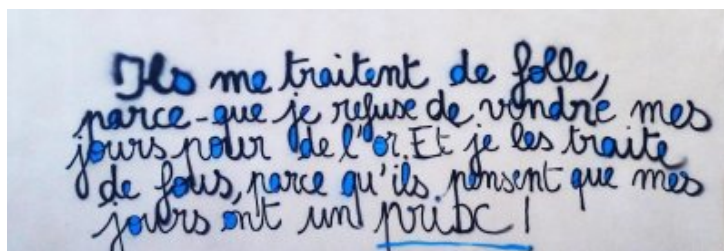 Ils me traitent de folle,
parce-que je refuse de vendre mes
jours pour de l'or. Et je les traite
de fous, parce qu'ils pensent que mes
jours ont un prix !